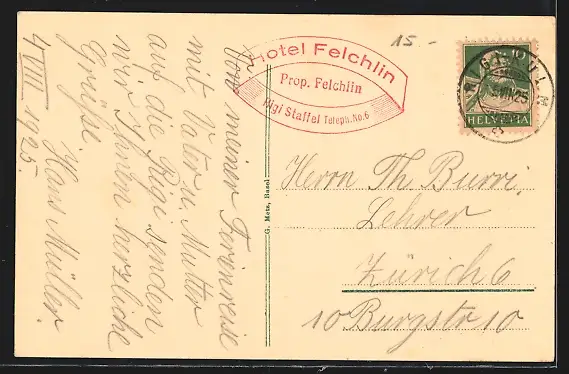 Von meiner Ferienreise
mit Vater u. Mutter
auf die Rigi senden
wir Ihnen herzliche
Grüße.
Hans Müller.
4 VIII 1925.
Hotel Felchlin
Prop. Felchlin
Rigi Staffel Teleph. No. 6
15.-
10
HELVETIA
RIGI KULM
VIII 25
G. Metz, Basel
Herrn Th. Burri,
Lehrer
Zürich 6
10 Burgstr 10